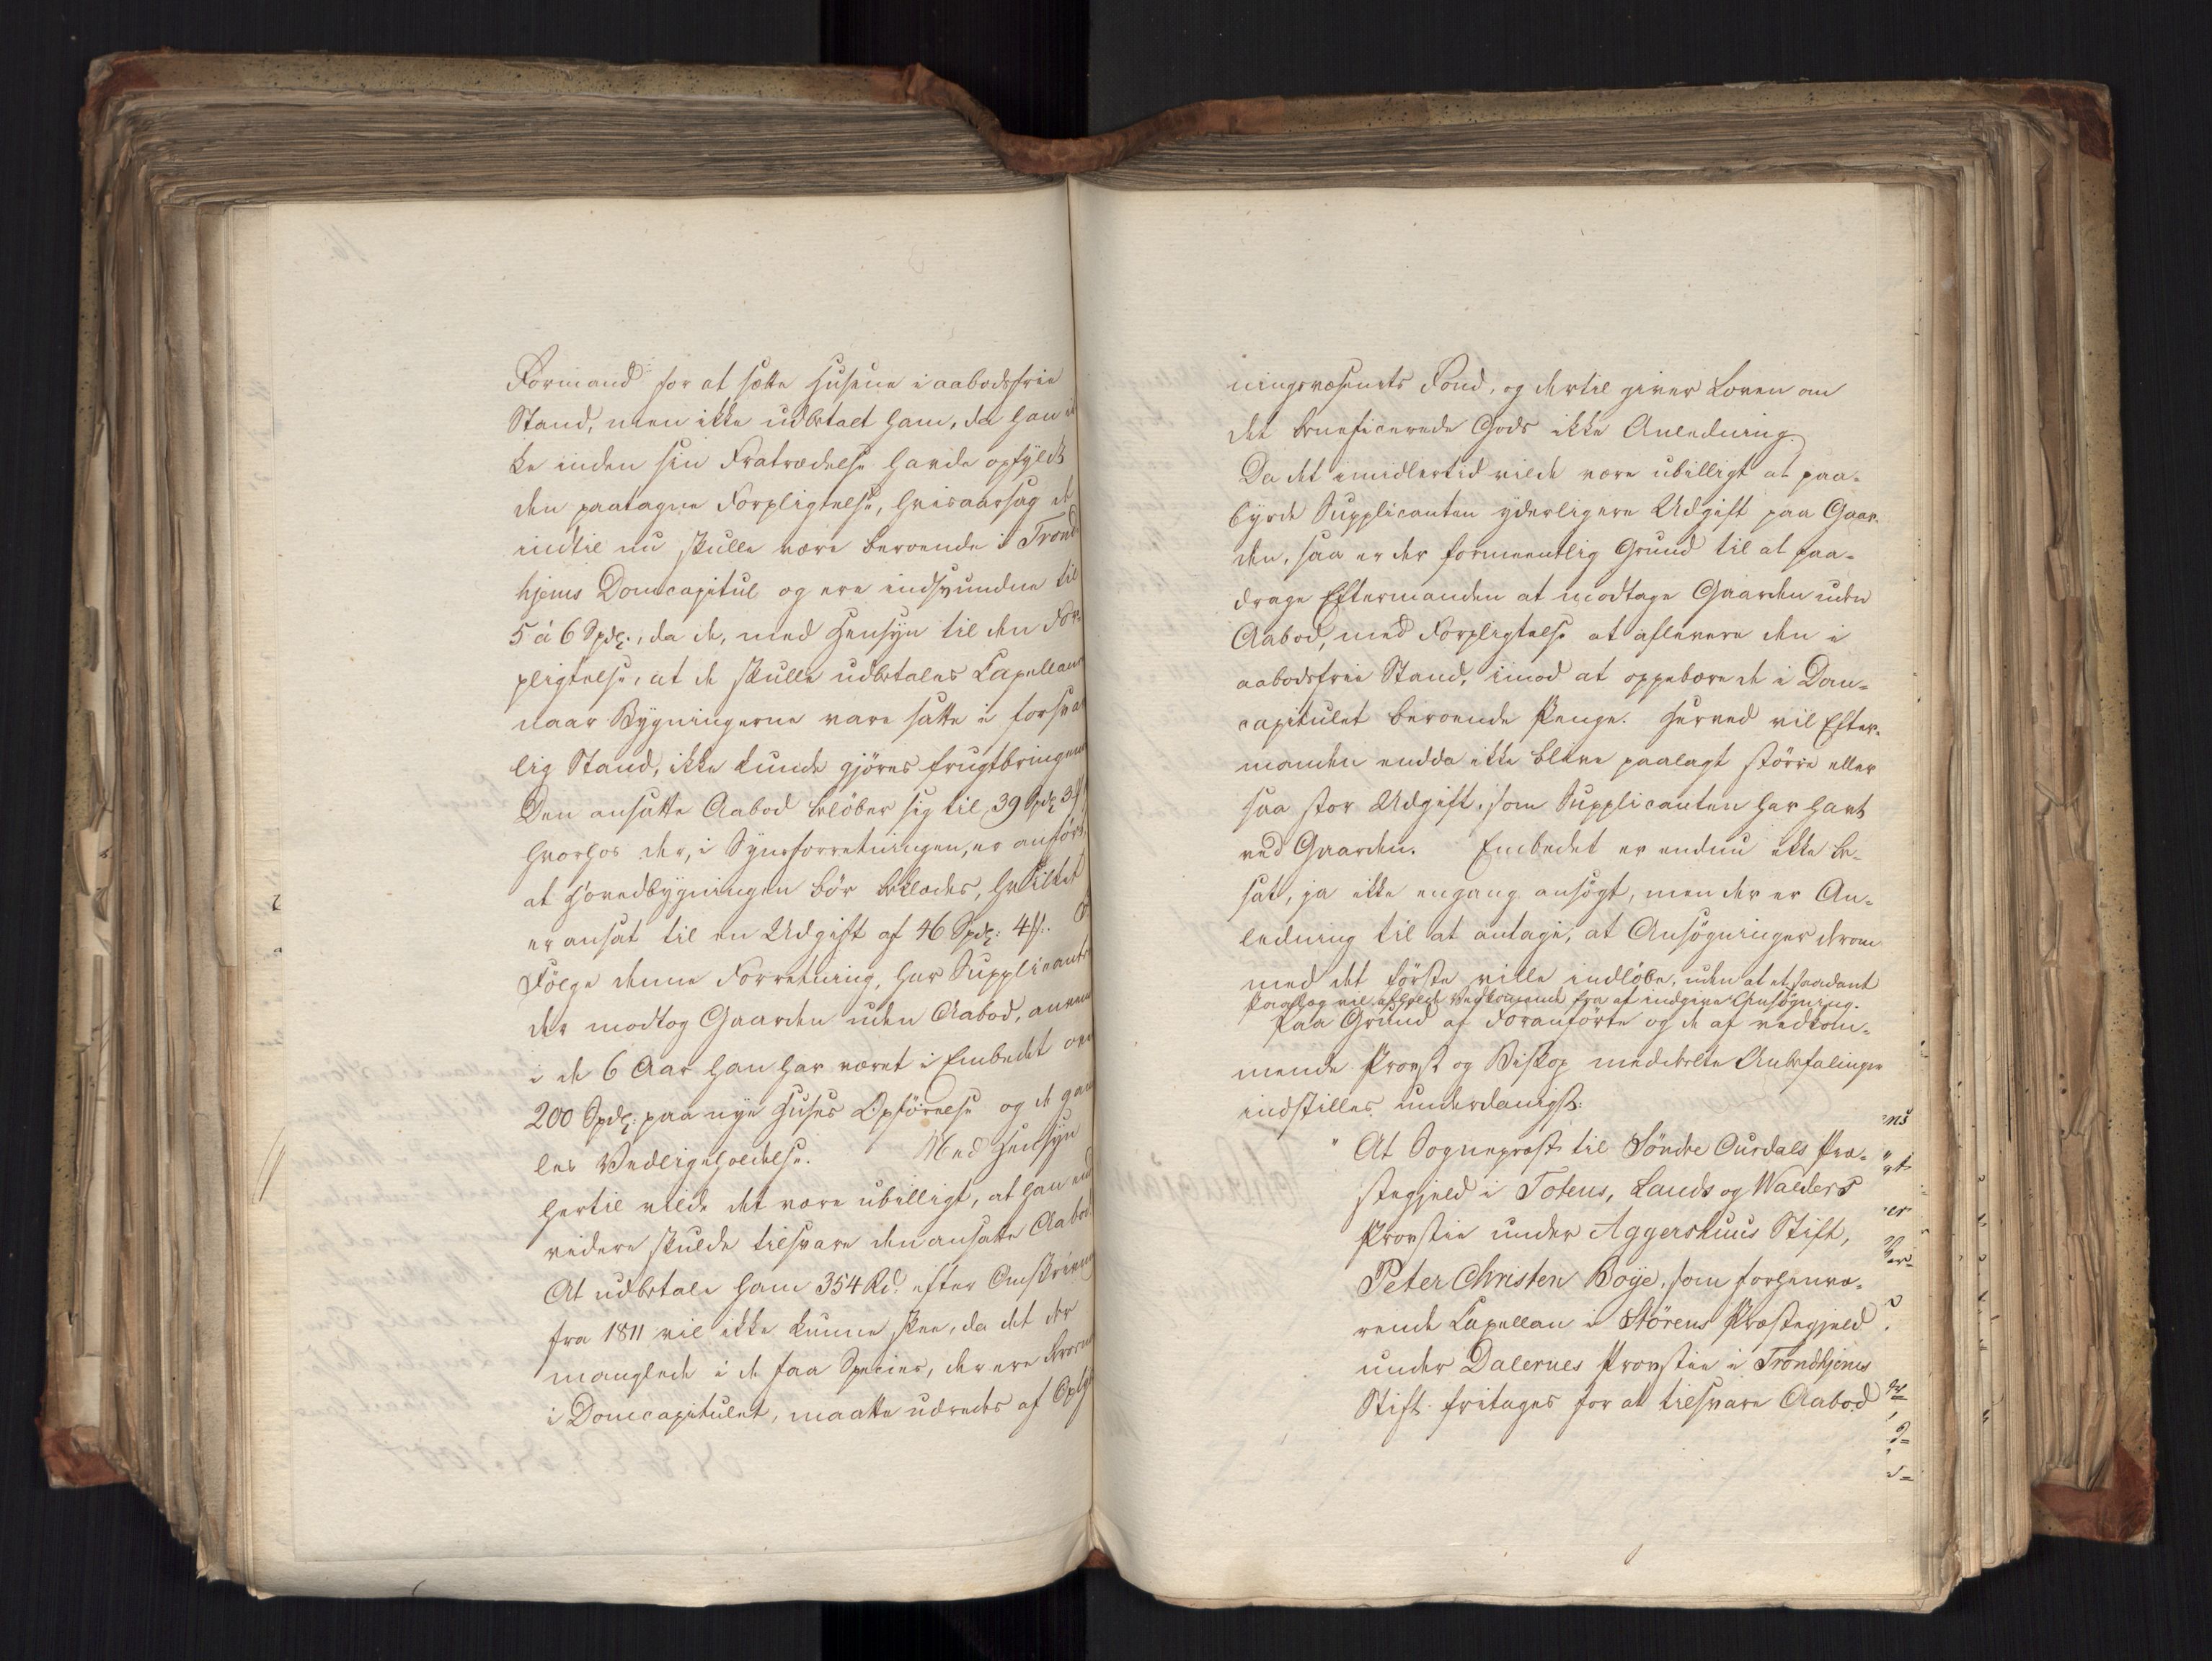 Formand for at sætte Husene i aabodsfrie
Stand, men ikke udbetalt ham, da han ik
ke inden sin Fratrædelse havde opfyldt
den paatagne Forpligtelse, hvisaarsag de
indtil nu skulle være beroende i Trond
hjems Domcapitul og ere indsvundne til
5 á 6 Spd:, da de, med Hensyn til den For
pligtelse, at de skulle udbetales Capellan
naar Bygningerne vare satte i forsvar
lig Stand, ikke kunde gjöres frugtbringen
Den ansatte Aabod belöber sig til 39 Spd: 3
hvorhos der, i Synsforretningen, er anfört
at Hovedbygningen bör beklædes, hvilket
er ansat til en Udgift af 46 Spd: 4
Fölge denne Forretning, har Supplicant
der modtog Gaarden uden Aabod, anven
i de 6 Aar han har været i Embedet ov
200 Spd: paa nye Huses Opförelse og de gam
les Vedligeholdelse. Med Hensyn
hertil vilde det være ubilligt, at han end
videre skulde tilsvare den ansatte Aabod
At udbetale ham 354 Rd. efter Omskrivn
fra 1811 vil ikke kunne skee, da det der
manglede i de faa Species, der ere beroen
i Domcapitulet, maatte udredes af Oply
ningsvæsenets Fond, og dertil giver Loven om
det beneficerede Gods ikke Anledning.
Da det imidlertid vilde være ubilligt at paa-
byrde Supplicanten yderligere Udgift paa Gaar-
den, saa er der formeentlig Grund til at paa-
drage Eftermanden at modtage Gaarden uden
Aabod, med Forpligtelse at aflevere den i
aabodsfrie Stand, imod at oppebære de i Dom-
capitulet beroende Penge. Herved vil Efter-
manden endda ikke blive paalagt större eller
saa stor Udgift, som Supplicanten har havt
ved Gaarden. Embedet er endnu ikke be-
sat, ja ikke engang ansögt, men der er An-
ledning til at antage, at Ansögninger derom
med det förste ville indlöbe, uden at et saadant
Paalæg vil afholde Vedkommende fra at indgive Ansögning.
Paa Grund af Foranförte og de af vedkom-
mende Provst og Biskop meddeelte Anbefalinger
indstilles underdanigst:
" At Sognepræst til Söndre Ourdals Præ-
stegjeld i Totens, Lands og Walders
Provstie under Aggershuus Stift,
Peter Christen Boye, som forhenvæ-
rende Capellan i Störens Præstegjeld
under Dalernes Provstie i Trondhjems
Stift fritages for at tilsvare Aabod